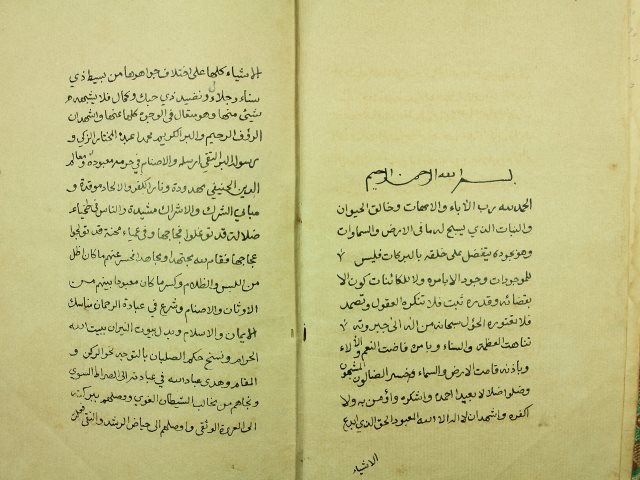 بسم الله الرحمن الرحيم
الحمد لله رب الآباء والامهات وخالق الحيوان
والنبات الذي يسبح له ما في الارض والسماوات
وهو بجوده يتفضل على خلقه بالبركات فليس
للموجودات وجود الا بامره ولا للكائنات كون الا
بقضائه وقدره ثبت فلا تنكره العقول وتصمد
فلا يعتوره سبحانه من اله الى جبروته
تناهت العظمة والسناء وبامره فاضت النعم والآلاء
وباذنه قامت الارض والسماء وخسر الضالون المشركون
وضلوا ضلالا بعيدا احمده واشكره وأومن به ولا
اكفره واشهد ان لا اله الا الله المعبود الحق الذي ابدع
الاشياء
الاشياء كلها على اختلاف جواهرها من بسيط ذي
سناء وجلاء ونضيد ذي حبك وكمال فلا يشبهه
شيئ منها وهو متعال في الوجود كلها عنها واشهد ان
الرؤف الرحيم والبر الكريم محمدا عبده المختار الزكي و
رسوله البر التقي ارسله والاصنام في حرمه معبودة ومعالم
الدين الحنيفي مهدودة ونار الكفر والالحاد موقدة و
مباني الشرك والاشراك مشيدة والناس في طخياء
ضلالة قد توغلوا فجاجها وفي عمياء قد تولجوا
عجاجها فقام لله مجتهدا ومجاهدا فحسر عنهم ما كان ظل
من اللبس والظلام وكسر ما كان معبودا بينهم من
الاوثان والاصنام وشرع في عبادة الرحمان مناسك
الايمان والاسلام وبدل بيوت النيران ببيت الله
الحرام ونسخ حكم الصلبان بالتوجه نحو الركن و
المقام وهدى عباد الله في عبادته الى الصراط السوي
ونجاهم من مخالب الشيطان الغوي ووصلهم ببركته
الى العروة الوثقى واوصلهم الى حياض الرشد والتقى